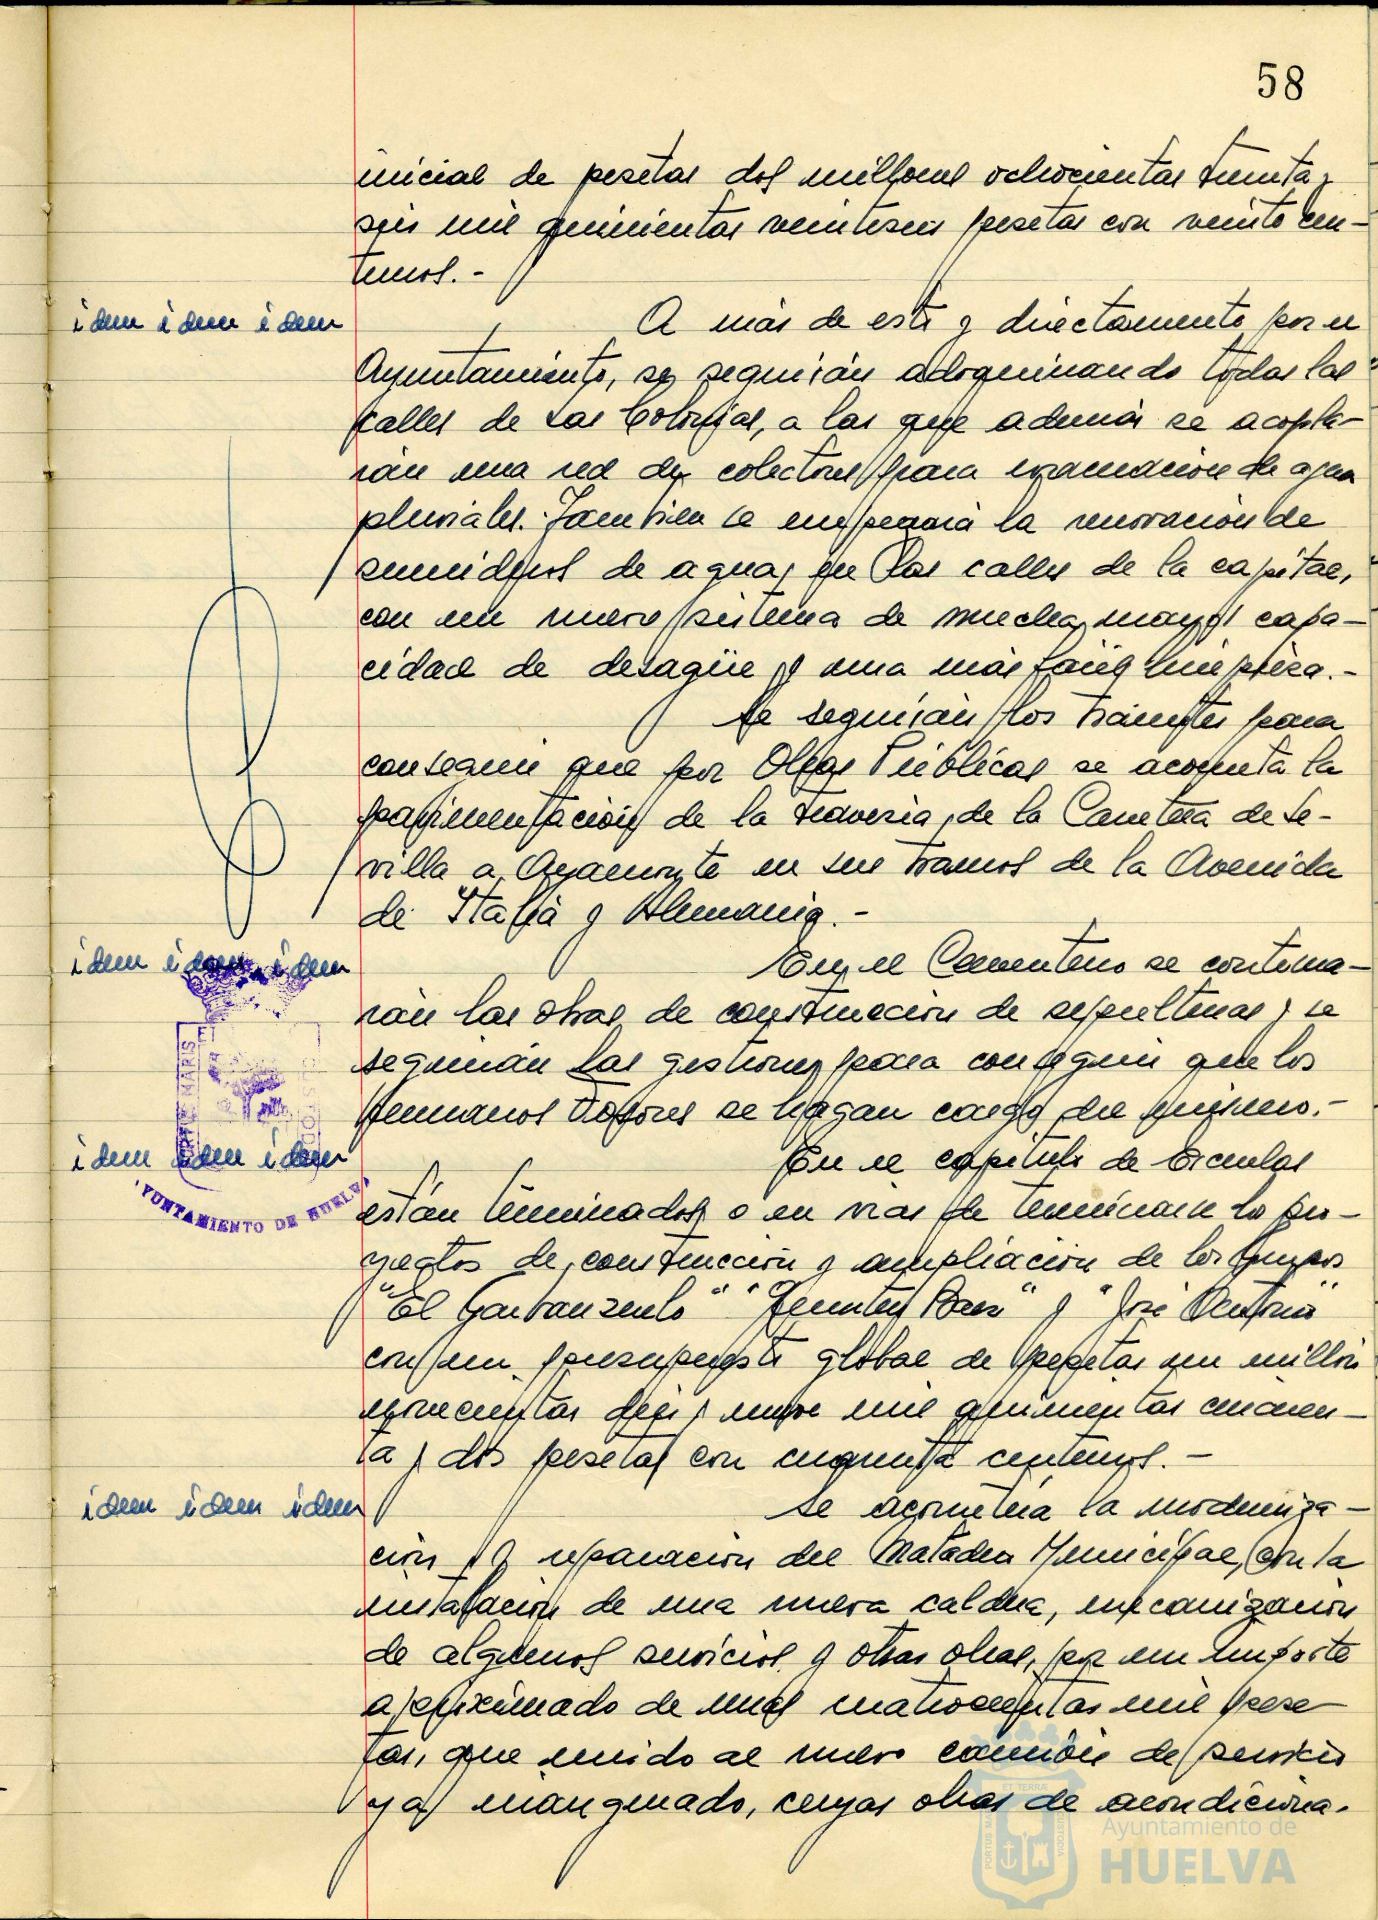 58
inicial de pesetas dos millones ochocientas treinta y
seis mil quinientas veinteseis pesetas con veinte cen-
timos.-
idem idem idem
A más de esto y directamente por el
Ayuntamiento, se seguirán adoquinando todas las
calles de Las Colonias, a las que además se acopla-
rán una red de colectores para evacuación de aguas
pluviales. También se empezará la renovación de
sumideros de aguas en las calles de la capital,
con un nuevo sistema de mucha mayor capa-
cidad de desagüe y una más fácil limpieza.-
Se seguirán los trámites para
conseguir que por Obras Públicas se acometa la
pavimentación de la travesía de la Carretera de Se-
villa a Ayamonte en sus tramos de la Avenida
de Italia y Alemania.-
idem idem idem
En el Cementerio se continua-
rán las obras de construcción de sepulturas y se
seguirán las gestiones para conseguir que los
Hermanos Fosores se hagan cargo del mismo.-
idem idem idem
En el capítulo de Escuelas
están terminados o en vías de terminarse los pro-
yectos de construcción y ampliación de los Grupos
"El Garbanzuelo" "Quintero Baez" y "José Antonio"
con un presupuesto global de pesetas un millón
novecientas diez y nueve mil quinientas cincuen-
ta y dos pesetas con cuarenta centimos.-
idem idem idem
Se acometerá la moderniza-
ción y reparación del Matadero Municipal, con la
instalación de una nueva caldera, mecanización
de algunos servicios y otras obras, por un importe
aproximado de unas cuatrocientas mil pese-
tas, que unido al nuevo camión de servicio
ya inaugurado, cuyas obras de acondiciona-
PORTUS MARIS ET
AYUNTAMIENTO DE HUELVA
PORTUS MARIS
ET TERRAE
CUSTODIA
Ayuntamiento de
HUELVA